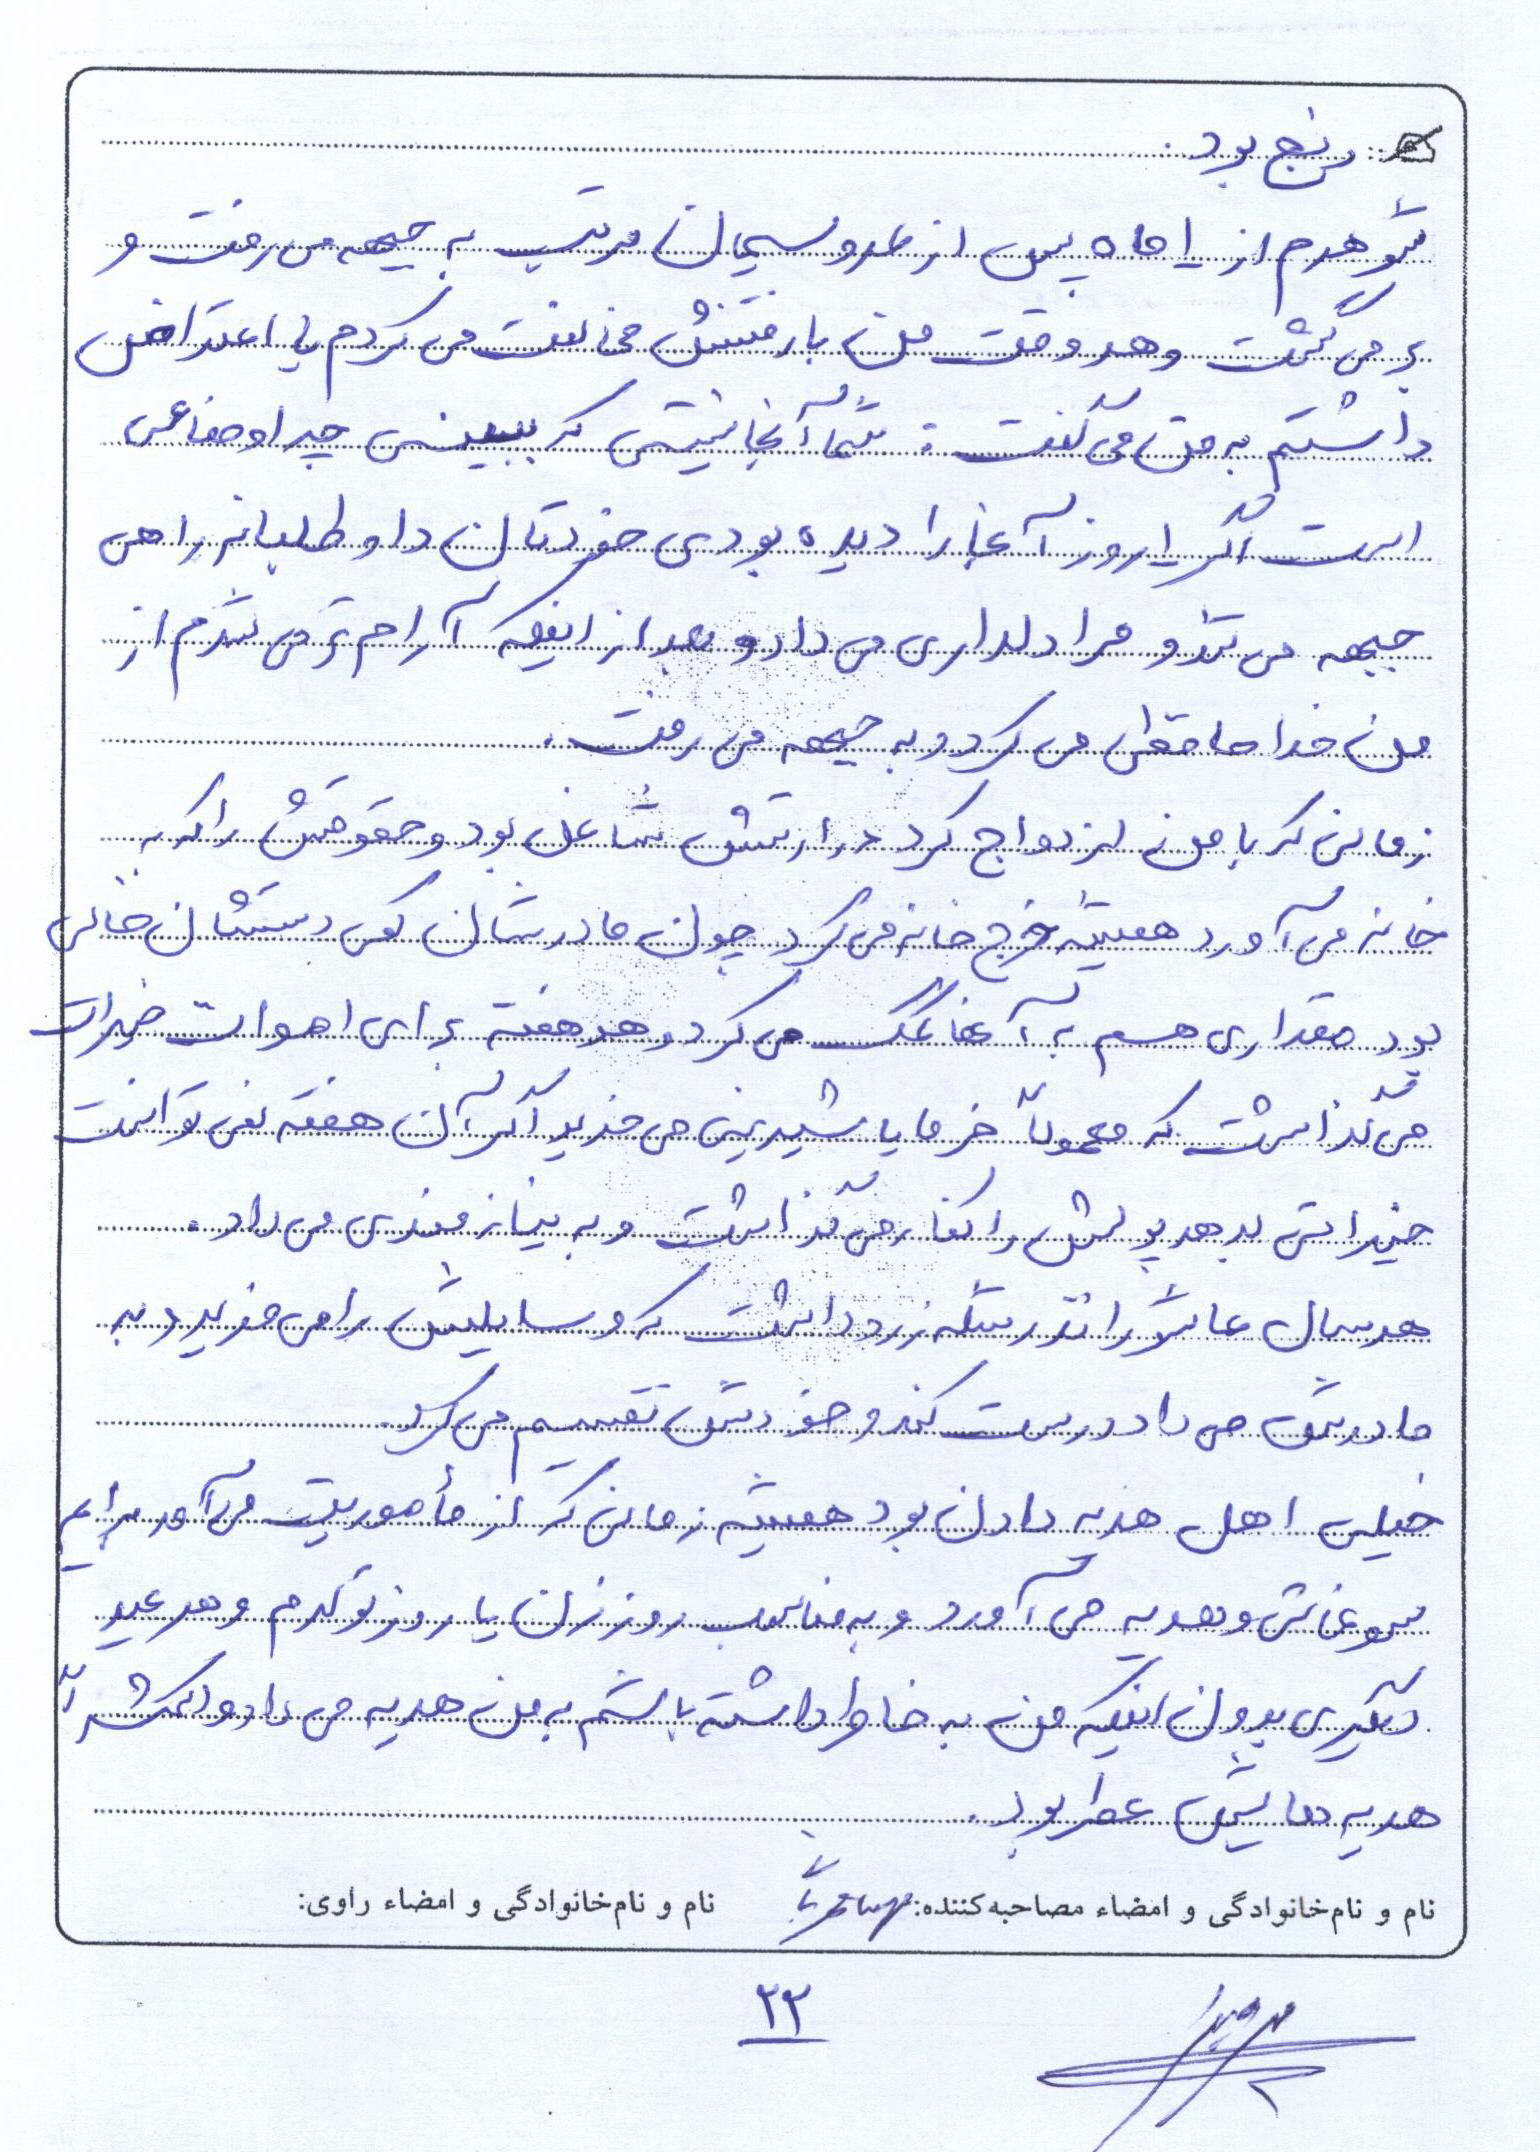 رنج بود.
شوهرم از ۱ ماه پس از عروسیمان مرتب به جبهه می رفت و
بر می گشت و هر وقت من با رفتنش مخالفت می کردم یا اعتراض
داشتم به من می گفت : شما آنجا نیستی که ببینی چه اوضاعی
است اگر ۱ روز آنجا را دیده بودی خودتان داوطلبانه راهی
جبهه می شد و مرا دلداری می داد و بعد از اینکه آرام تر می شدم از
من خداحافظی می کرد و به جبهه می رفت.
زمانی که با من ازدواج کرد در ارتش شاغل بود و حقوقش را که به
خانه می آورد همیشه خرج خانه می کرد چون مادرشان کمی دستشان خالی
بود مقداری هم به آنها کمک می کرد و هر هفته برای اموات خیرات
می گذاشت که معمولاً خرما یا شیرینی می خرید اگر آن هفته نمی توانست
خیراتی بدهد پولش را کنار می گذاشت و به نیازمندی می داد.
هر سال عاشورا نذر شله زرد داشت که وسایلش را می خرید و به
مادرش می داد درست کند و خودش تقسیم می کرد.
خیلی اهل هدیه دادن بود همیشه زمانی که از مأموریت می آمد برایم
سوغاتی و هدیه می آورد و به مناسب روز زن یا روز تولدم و هر عید
دیگری بدون اینکه من به خاطر داشته باشم به من هدیه می داد و اکثراً
هدیه هایش عطر بود.
نام و نام خانوادگی و امضاء مصاحبه کننده: نام و نام خانوادگی و امضاء راوی:
۲۳